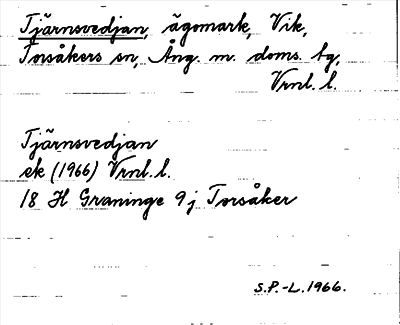 Tjärnsvedjan, ägomark, Vik,
Torsåkers sn, Ång. m. doms. bg,
Vrnl. l.
Tjärnsvedjan
ek (1966) Vrnl. l.
18 H Graninge 9 j Torsåker
S.P.-L. 1966.